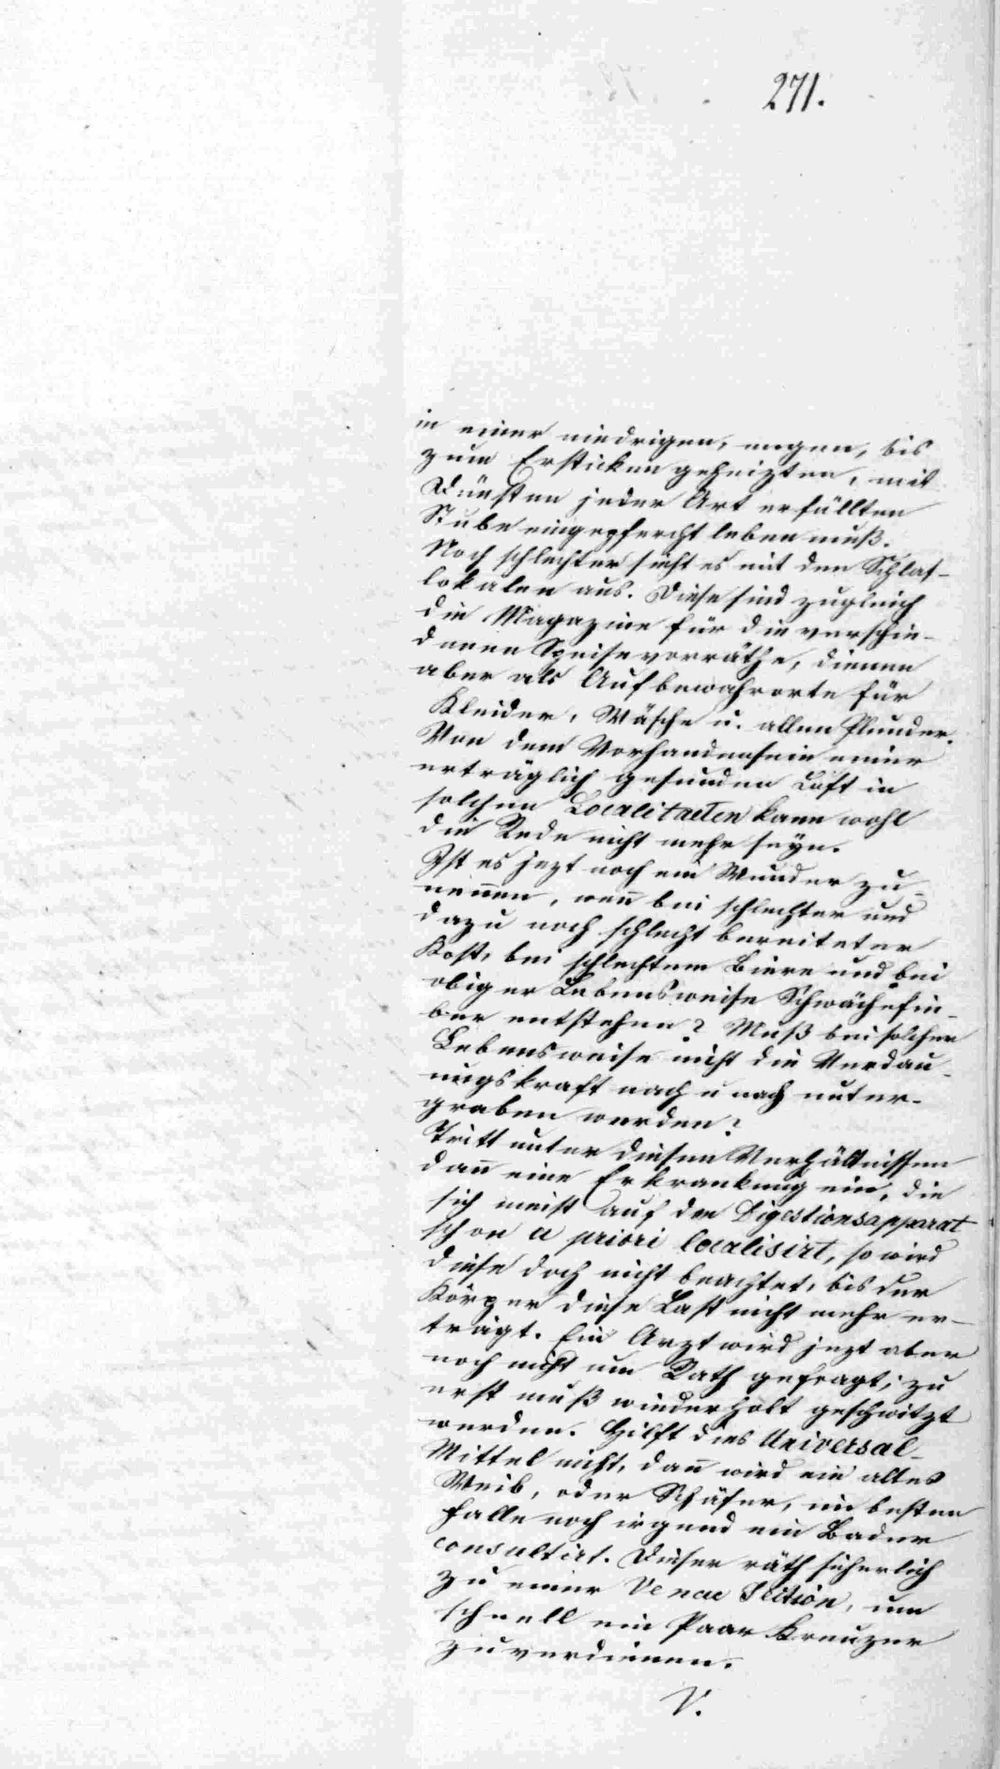 271.
in einer niedrigen, engen, bis
zum Ersticken geheizten, mit
Dünsten jeder Art erfüllten
Stube eingepfercht leben muß.
Noch schlechter sieht es mit den Schlaf-
lokalen aus. Diese sind zugleich
die Magazine für die verschie-
denen Speisevorräthe, dienen
aber als Aufbewahrorte für
Kleider, Wäsche u. allen Plunder.
Von dem Vorhandensein einer
erträglich gesunden Luft in
solchen Localitaeten kann wohl
die Rede nicht mehr seyn.
Ist es jezt noch ein Wunder zu
nennen, wen̄ bei schlechter und
dazu noch schlecht bereiteter
Kost, bei schlechtem Biere und bei
obiger Lebensweise Schwächefie-
ber entstehen? Muß bei solcher
Lebensweise nicht die Verdau-
ungskraft nach u nach unter-
graben werden?
Tritt unter diesen Verhältnissen
dan̄ eine Erkrankung ein, die
sich meist auf den Digestionsapparat
schon a priori localisirt, so wird
diese doch nicht beachtet, bis der
Körper diese Last nicht mehr er-
trägt. Ein Arzt wird jezt aber
noch nicht um Rath gefragt; zu
erst muß wiederholt geschwitzt
werden. Hilft dies Universal-
Mittel nicht, dan̄ wird ein altes
Weib, oder Schäfer, im besten
Falle noch irgend ein Bader
consultirt. Dieser räth sicherlich
zu einer Venae Section, um
schnell ein Paar Kreuzer
zu verdienen.
V.